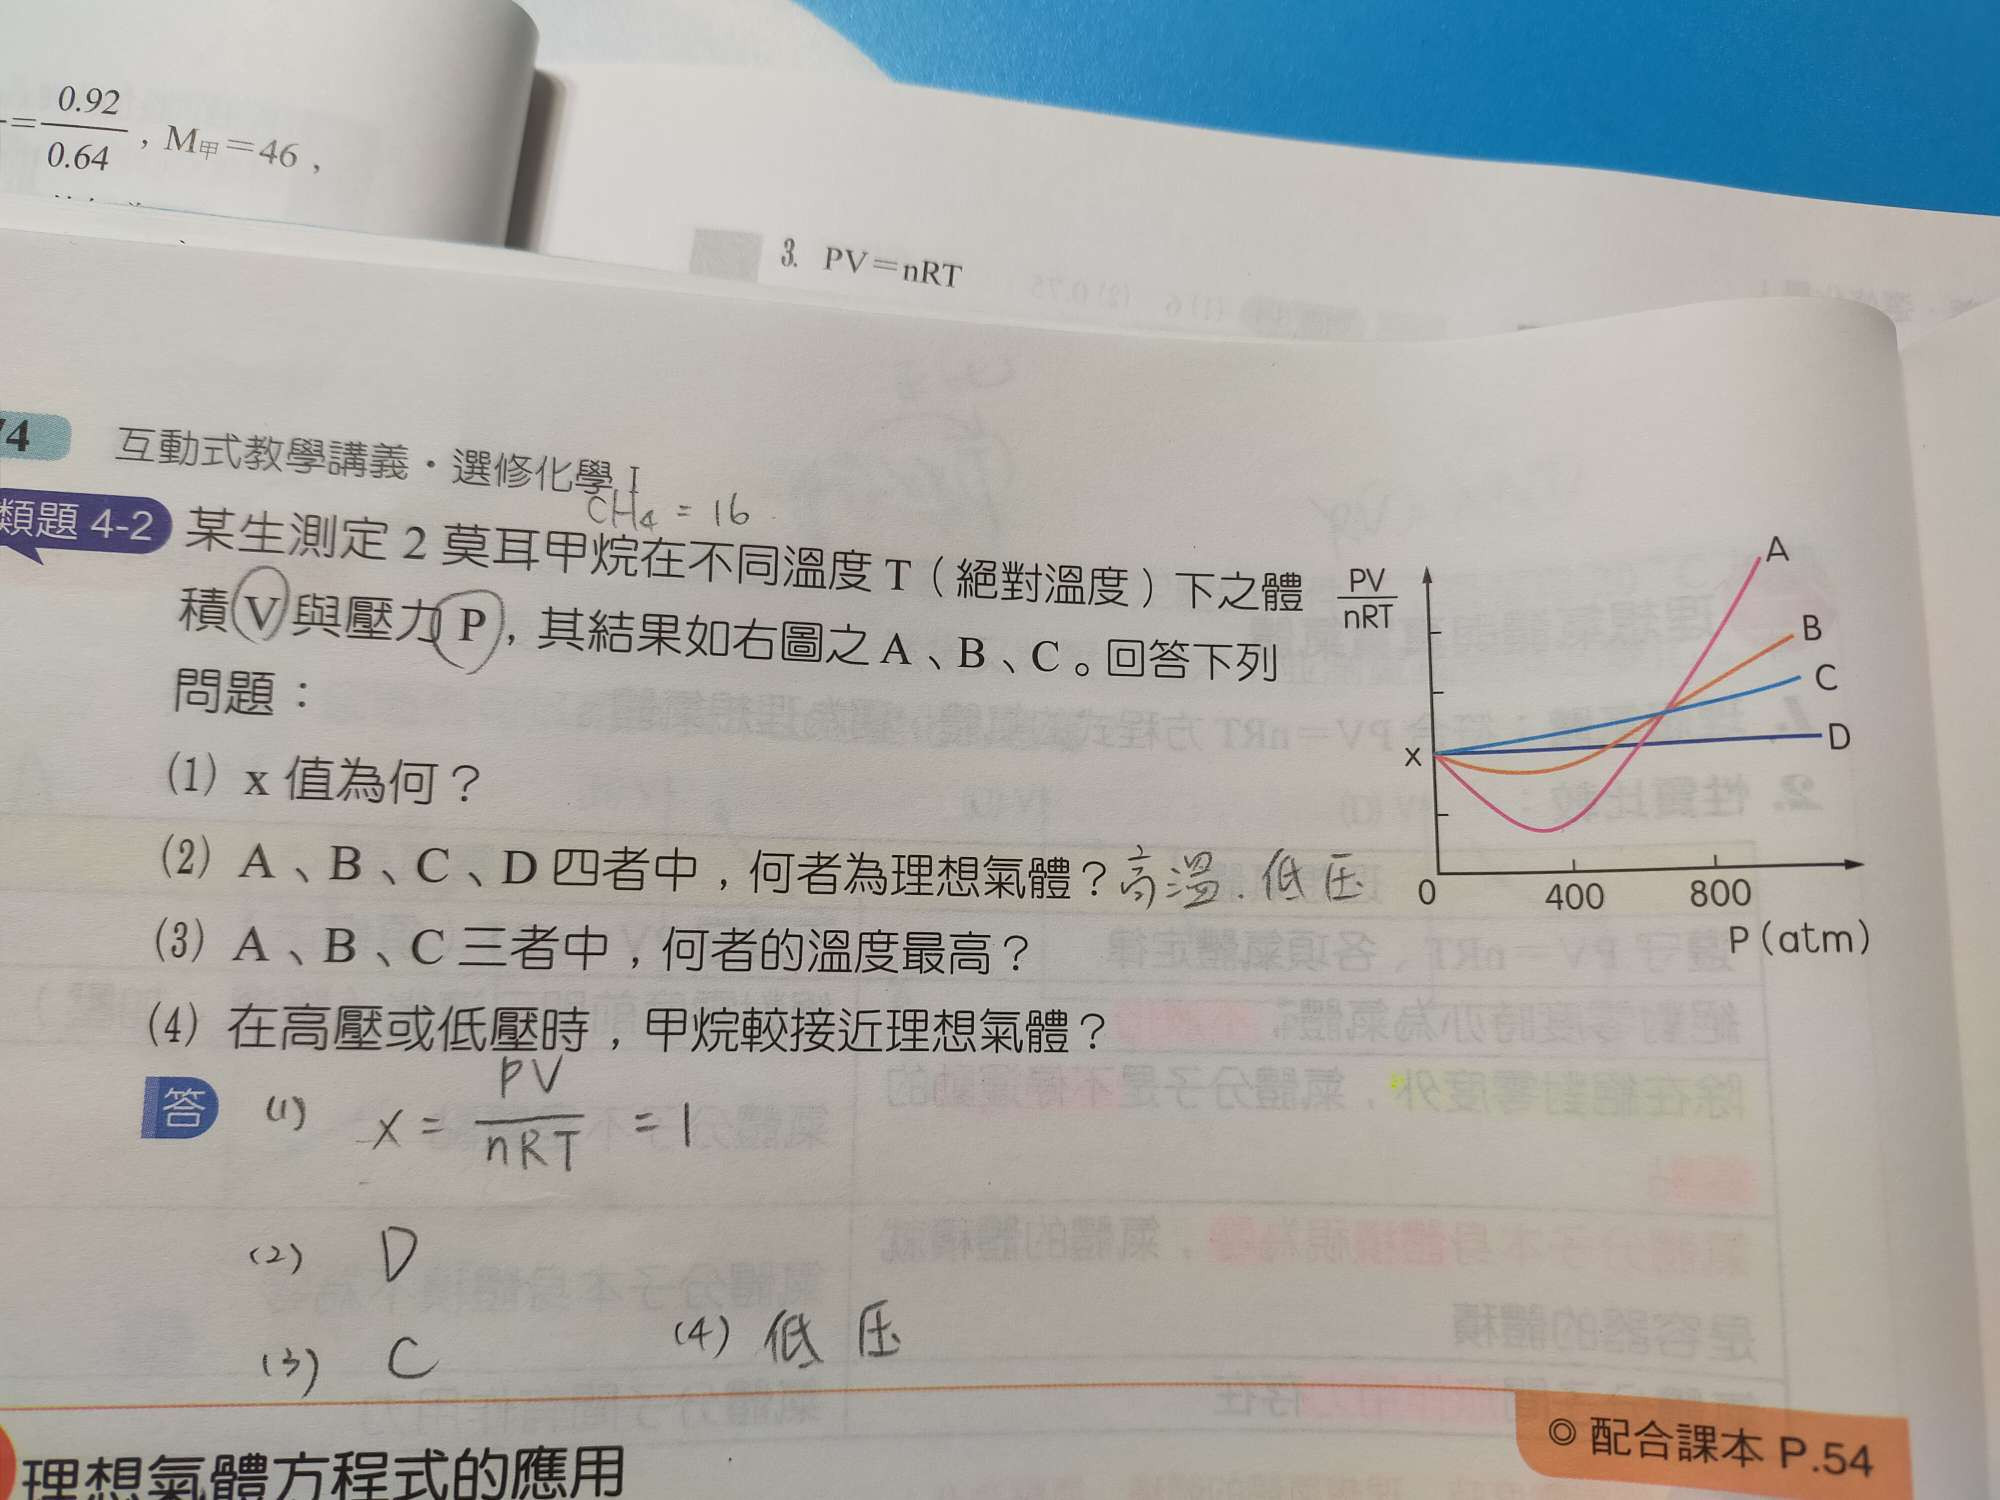 =0.92/0.64，M甲=46，
3. PV=nRT
74
互動式教學講義・選修化學 I
CH4 = 16
類題 4-2 某生測定 2 莫耳甲烷在不同溫度 T（絕對溫度）下之體
積 V 與壓力 P，其結果如右圖之 A、B、C。回答下列
問題：
(1) x 值為何？
(2) A、B、C、D 四者中，何者為理想氣體？高溫. 低压
(3) A、B、C 三者中，何者的溫度最高？
(4) 在高壓或低壓時，甲烷較接近理想氣體？
PV/nRT
A
B
C
D
x
0 400 800
P(atm)
答 (1) x = PV/nRT = 1
(2) D
(3) C (4) 低压
◎配合課本 P.54
理想氣體方程式的應用